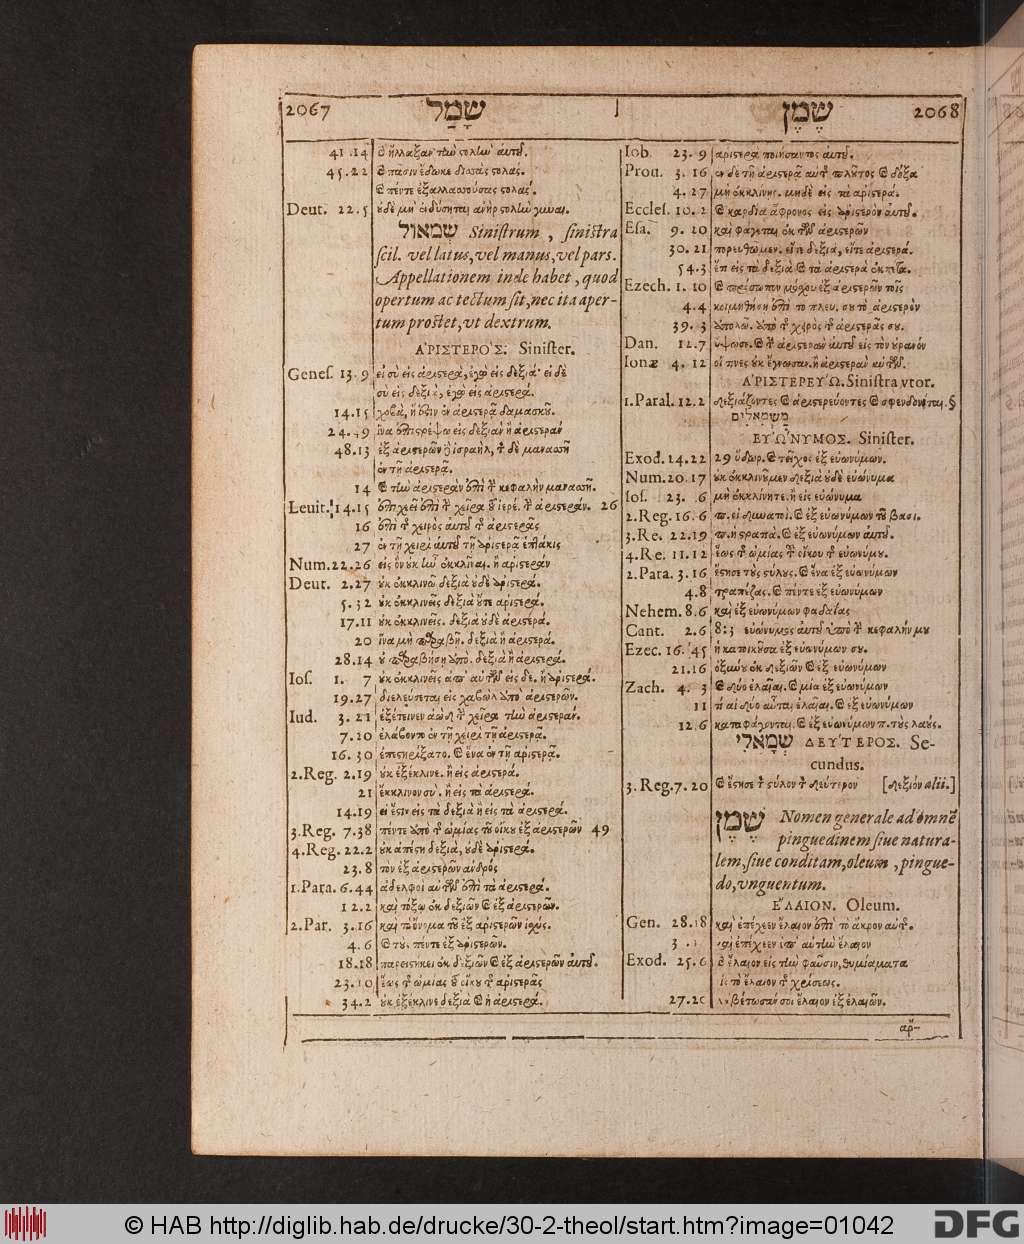 2067 שָׂמַל
שֶׁמֶן 2068
41.14 ἤλλαξαν αὐτοῦ.
45.22 πᾶσιν ἔδωκε δισσὰς στολάς.
πέντε ἐξαλλασσούσας στολάς.
Deut. 22.5 οὐδὲ μὴ ἐνδύσηται ἀνὴρ στολὴν γυναι.
שְׂמֹאול Sinistrum, sinistra
scil. vel latus, vel manus, vel pars.
Appellationem inde habet, quod
opertum ac tectum sit, nec ita aper-
tum prostet, vt dextrum.
ἈΡΙΣΤΕΡΟΣ. Sinister.
Genes. 13.9 εἰ σὺ εἰς ἀριστερὰ, ἐγὼ εἰς δεξιά· εἰ δὲ
σὺ εἰς δεξιὰ, ἐγὼ εἰς ἀριστερά.
14.15 χοβὰ, ἥ ἐστιν ἐν ἀριστερᾷ δαμασκοῦ.
24.49 ἵνα ἐπιστρέψω εἰς δεξιὰν ἢ ἀριστεράν
48.13 ἐξ ἀριστερῶν ἰσραὴλ, δὲ μανασσῆ
ἐν τῇ ἀριστερᾷ.
14 τὴν ἀριστερὰν ἐπὶ τὴν κεφαλὴν μανασσῆ.
Leuit. 14.15 ἐπιχεεῖ ἐπὶ τὴν χεῖρα τοῦ ἱερέ. τὴν ἀριστεράν. 26
16 ἐπὶ τῆς χειρὸς αὐτοῦ τῆς ἀριστερᾶς
27 ἐν τῇ χειρὶ αὐτοῦ τῇ ἀριστερᾷ ἑπτάκις
Num. 22.26 εἰς ὃν οὐκ ἦν ἐκκλῖναι. ἢ ἀριστεράν
Deut. 2.27 οὐκ ἐκκλινῶ δεξιὰ οὐδὲ ἀριστερά.
5.32 οὐκ ἐκκλινεῖς δεξιὰ οὔτε ἀριστερά.
17.11 οὐκ ἐκκλινεῖς. δεξιὰ οὐδὲ ἀριστερά.
20 ἵνα μὴ παραβῇ. δεξιὰ ἢ ἀριστερά.
28.14 οὐ παραβήσῃ ἀπὸ. δεξιὰ ἢ ἀριστερά.
Ios. 1. 7 οὐκ ἐκκλινεῖς ἀπ' αὐτῶν εἰς δε. ἢ ἀριστερά.
19.27 διελεύσεται εἰς χαβὼλ ἀπὸ ἀριστερῶν.
Iud. 3.21 ἐξέτεινεν ἀὼδ τὴν χεῖρα τὴν ἀριστεράν.
7.20 ἐλάβοντο ἐν τῇ χειρὶ τῇ ἀριστερᾷ.
16.30 ἐπεστηρίξατο. ἕνα ἐν τῇ ἀριστερᾷ.
2.Reg. 2.19 οὐκ ἐξέκλινε. ἢ εἰς ἀριστερά.
21 ἔκκλινον σύ. ἢ εἰς τὰ ἀριστερά.
14.19 εἰ ἔστιν εἰς τὰ δεξιὰ ἢ εἰς τὰ ἀριστερά.
3.Reg. 7.38 πέντε ἀπὸ τῆς ὠμίας τοῦ οἴκου ἐξ ἀριστερῶν 49
4.Reg. 22.2 οὐκ ἀπέστη δεξιὰ, οὐδὲ ἀριστερά.
23.8 τῶν ἐξ ἀριστερῶν ἀνδρὸς
1.Para. 6.44 ἀδελφοὶ αὐτῶν ἐπὶ τὰ ἀριστερά.
12.2 καὶ τόξῳ ἐκ δεξιῶν ἐξ ἀριστερῶν.
2.Par. 3.16 καὶ τὸ ὄνομα τοῦ ἐξ ἀριστερῶν ἰσχύς.
4.6 τοὺς πέντε ἐξ ἀριστερῶν.
18.18 παρειστήκει ἐκ δεξιῶν ἐξ ἀριστερῶν αὐτοῦ.
23.10 ἕως τῆς ὠμίας τοῦ οἴκου τῆς ἀριστερᾶς
34.2 οὐκ ἐξέκλινε δεξιὰ ἢ ἀριστερά.
Iob. 23.9 ἀριστερὰ ποιήσαντος αὐτοῦ.
Prou. 3.16 ἐν δὲ τῇ ἀριστερᾷ αὐτῆς πλοῦτος δόξα
4.27 μὴ ἐκκλίνῃς. μηδὲ εἰς τὰ ἀριστερά.
Eccles. 10.2 καρδία ἄφρονος εἰς ἀριστερὸν αὐτοῦ.
Esa. 9.20 καὶ φάγεται ἐκ τῶν ἀριστερῶν
30.21 πορευθῶμεν. εἴτε δεξιὰ, εἴτε ἀριστερά.
54.3 ἔτι εἰς τὰ δεξιὰ τὰ ἀριστερὰ ἐκπέτα.
Ezech. 1.10 πρόσωπον μόσχου ἐξ ἀριστερῶν τοῖς
4.4 κοιμηθήσῃ ἐπὶ τὸ πλευ. σου τὸ ἀριστερὸν
39.3 ἀπολῶ. ἀπὸ τῆς χειρὸς τῆς ἀριστερᾶς σου.
Dan. 12.7 ὕψωσε. τὴν ἀριστερὰν αὐτοῦ εἰς τὸν οὐρανόν
Ionæ 4.12 οἵτινες οὐκ ἔγνωσαν. ἢ ἀριστερὰν αὐτῶν.
ἈΡΙΣΤΕΡΕΥΩ. Sinistra vtor.
1.Paral. 12.2 δεξιάζοντες ἀριστερεύοντες σφενδονῆται. §
מַשְׂמִאלִים
ΕΥΩΝΥΜΟΣ. Sinister.
Exod. 14.22 29 ὕδωρ. τεῖχος ἐξ εὐωνύμων.
Num. 20.17 οὐκ ἐκκλινοῦμεν δεξιὰ οὐδὲ εὐώνυμα
Ios. 23. 6 μὴ ἐκκλίνητε. ἢ εἰς εὐώνυμα
2.Reg. 16.6 π. οἱ δυνατοὶ. ἐξ εὐωνύμων τοῦ βασι.
3.Re. 22.19 π. ἡ στρατιὰ. ἐξ εὐωνύμων αὐτοῦ.
4.Re. 11.12 ἕως τῆς ὠμίας τοῦ οἴκου τῆς εὐωνύμου.
2.Para. 3.16 ἔστησε τοὺς στύλους. ἕνα ἐξ εὐωνύμων
4.8 τραπέζας. πέντε ἐξ εὐωνύμων
Nehem. 8.6 καὶ ἐξ εὐωνύμων φαδαΐας
Cant. 2.6 8:3 εὐώνυμος αὐτοῦ ὑπὸ τὴν κεφαλήν μου
Ezec. 16.45 ἡ κατοικοῦσα ἐξ εὐωνύμων σου.
21.16 ὀξύνου ἐκ δεξιῶν ἐξ εὐωνύμων
Zach. 4.3 δύο ἐλαῖαι. μία ἐξ εὐωνύμων
11 τί αἱ δύο αὗται ἐλαῖαι. ἐξ εὐωνύμων
12.6 καταφάγονται. ἐξ εὐωνύμων π. τοὺς λαούς.
שְׂמָאלִי ΔΕΥΤΕΡΟΣ. Se-
cundus.
3.Reg. 7.20 ἔστησε τὸν στύλον τὸν δεύτερον [δεξιόν alii.]
שֶׁמֶן Nomen generale ad omnē
pinguedinem siue natura-
lem, siue conditam, oleum, pingue-
do, vnguentum.
ἜΛΑΙΟΝ. Oleum.
Gen. 28.18 καὶ ἐπέχεεν ἔλαιον ἐπὶ τὸ ἄκρον αὐτῆς.
3 καὶ ἐπέχεεν ἐπ' αὐτὴν ἔλαιον
Exod. 25.6 ἔλαιον εἰς τὴν φαῦσιν, θυμίαματα
εἰς τὸ ἔλαιον τῆς χρίσεως.
27.20 λαβέτωσάν σοι ἔλαιον ἐξ ἐλαιῶν.
ἀρ-
© HAB http://diglib.hab.de/drucke/30-2-theol/start.htm?image=01042
DFG